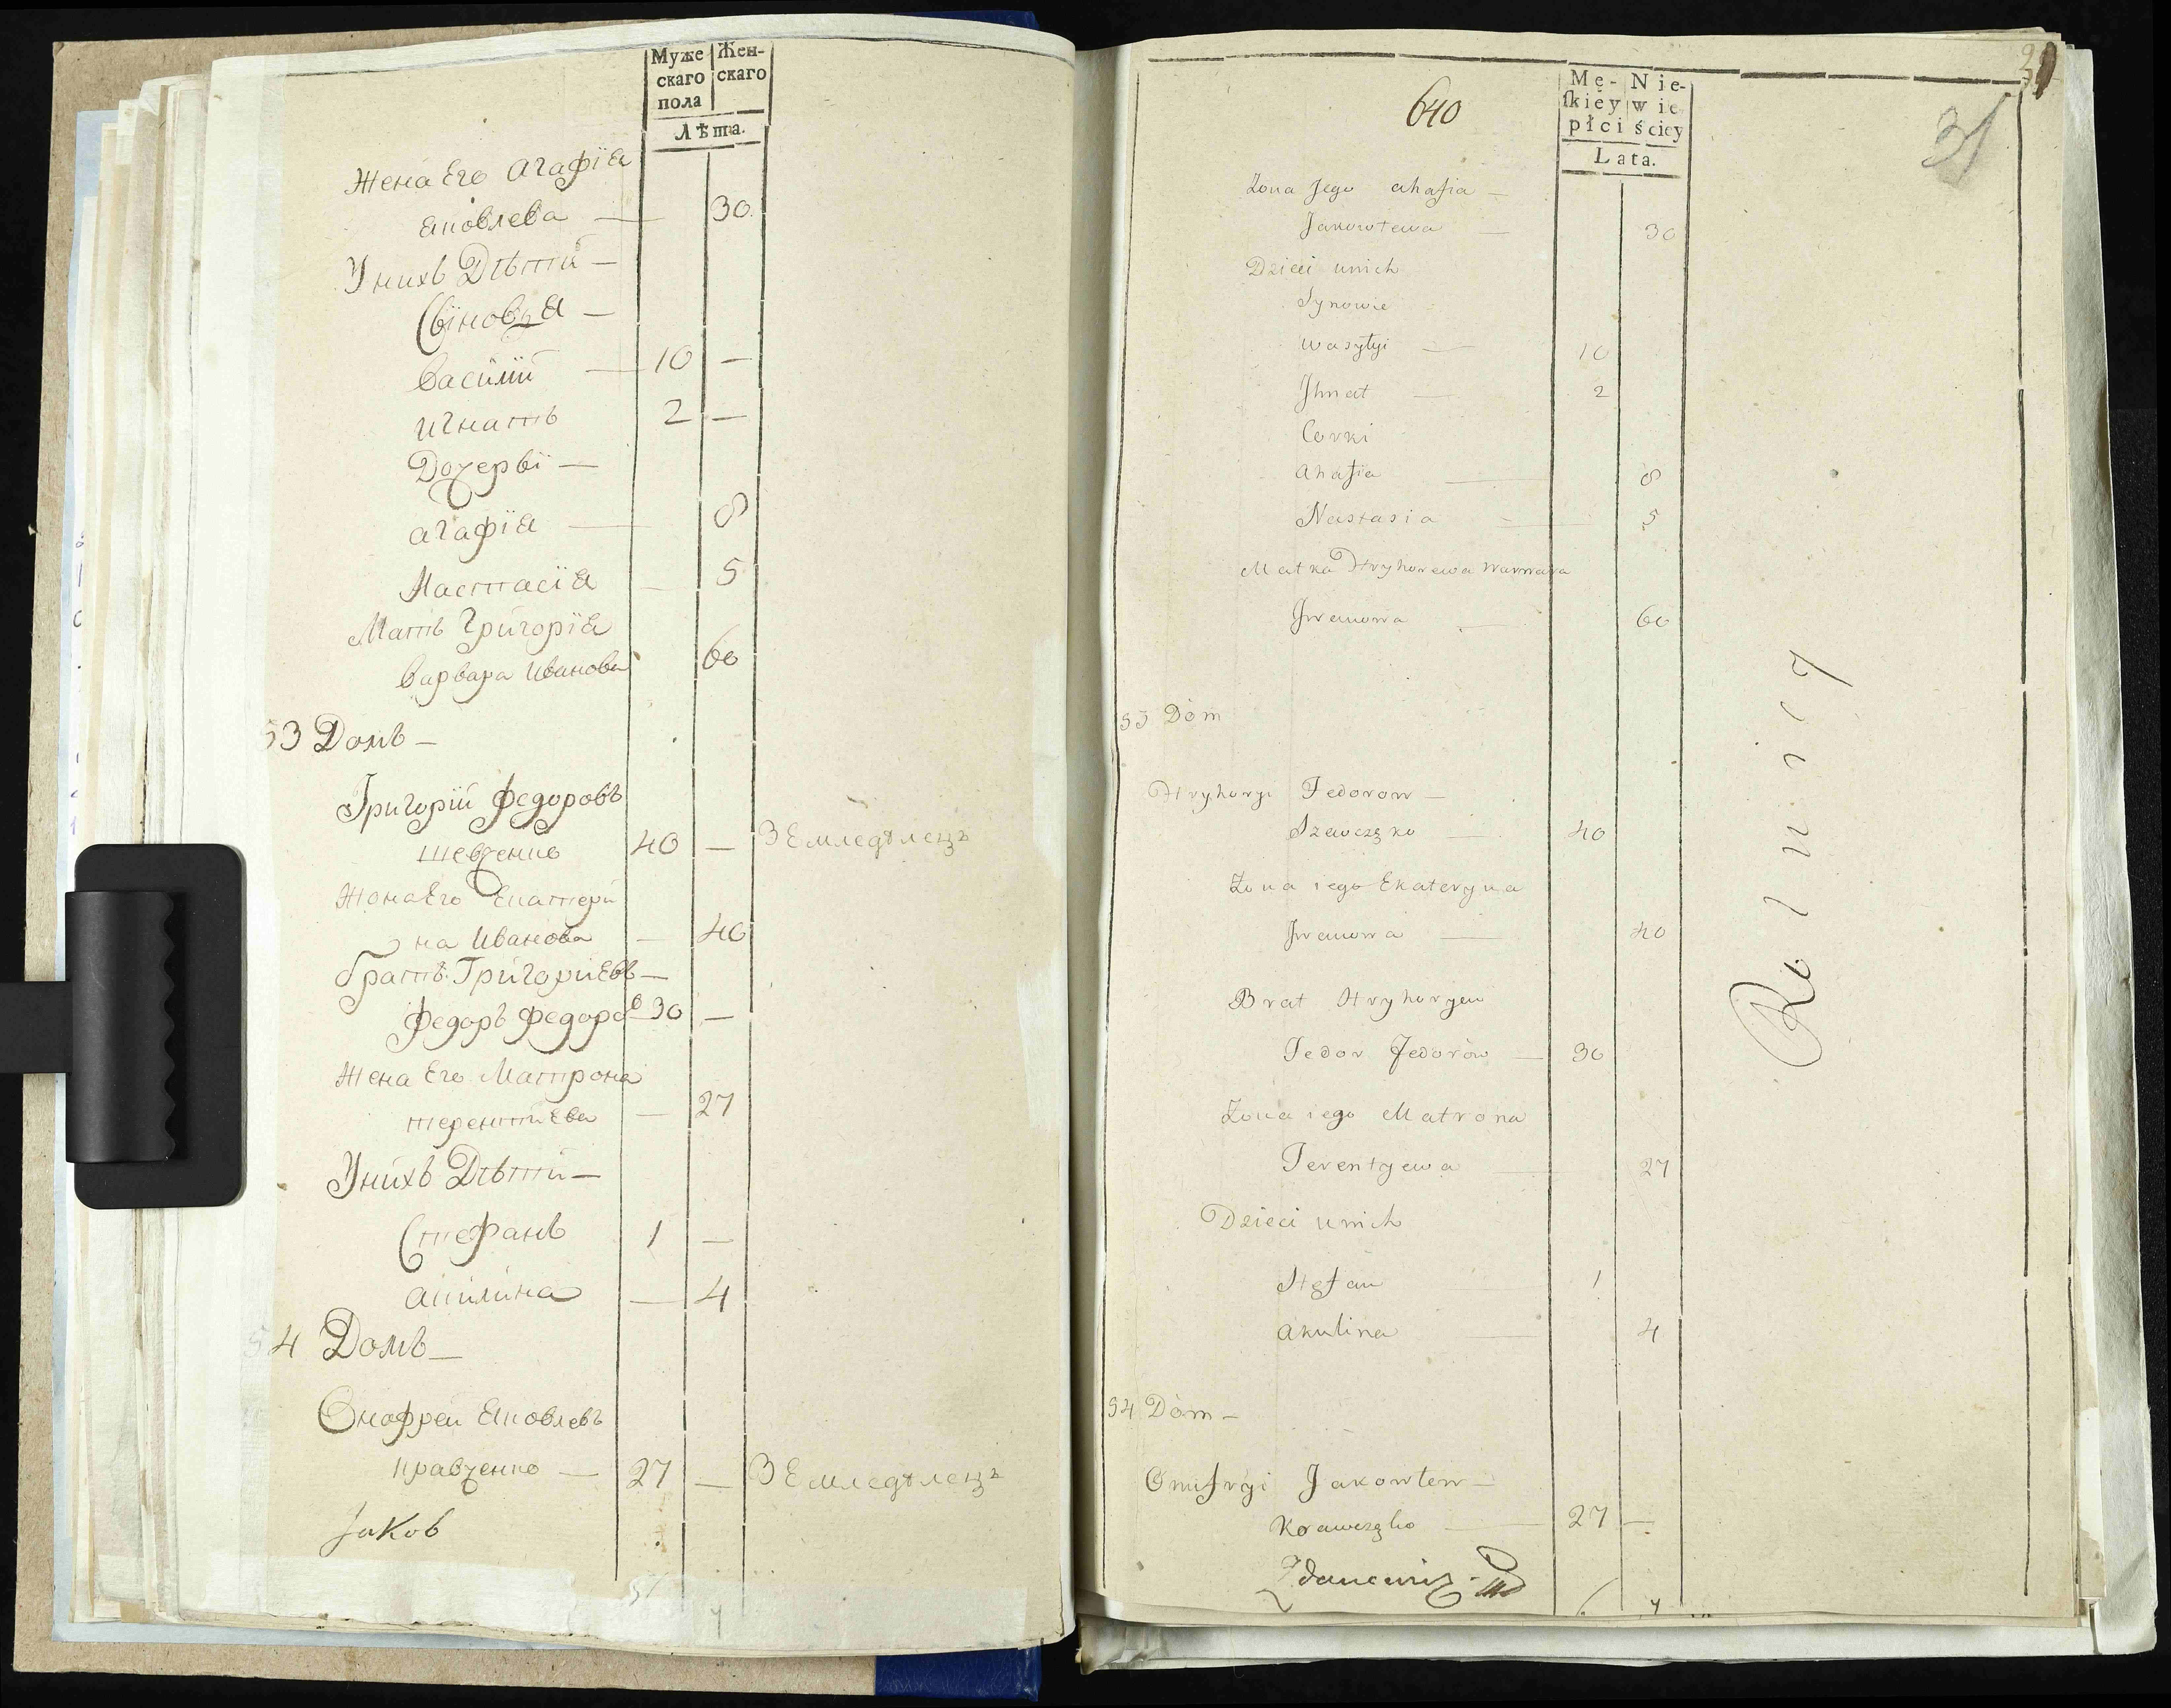 Муже Жен-
скаго скаго
пола
Лѣта.
Жена Его Агафїя
Яковлева — 30
У нихъ Дѣти —
Сыновья —
Василий — 10 —
Игнатъ 2 —
Дочеры —
Агафїя — 8
Настасїя — 5
Мать Григорїя
Варвара Иванова 60
53 Домъ —
Григорїй Федоровъ
Шевченко 40 — Земледѣлецъ
Жона Его Екатери
на Иванова — 40
братъ Григориевъ —
Федоръ Федоровъ 30 —
Жена Его Матрона
Терентиева — 27
У нихъ Дѣти —
Стефанъ 1 —
Акилина — 4
54 Домъ —
Онафрей Яковлевъ
Кравченко — 27 — Земледѣлецъ
Jakob
640
31
Mę- Nie-
ſkiey wie
płci ściey
Lata.
Żona Jego Ahafia —
Jakowlewa — 30
Dzieci u nich
Synowie
Wasylyi — 10
Jhnat — 2
Corki
Ahafia — 8
Nastasia — 5
Matka Hryhorewa Warwara
Jwanowa — 60
53 Dom
Hryhoryi Fedorow —
Szewczęko — 40
Żona iego Ekateryna
Jwanowa — 40
Brat Hryhoryew
Fedor Fedorów — 30
Żona iego Matrona
Terentyewa — 27
Dzieci u nich
Stefan 1
Akulina — 4
54 Dom —
Onufryi Jakowlew —
Krawczęko — 27 —
Rolnicy